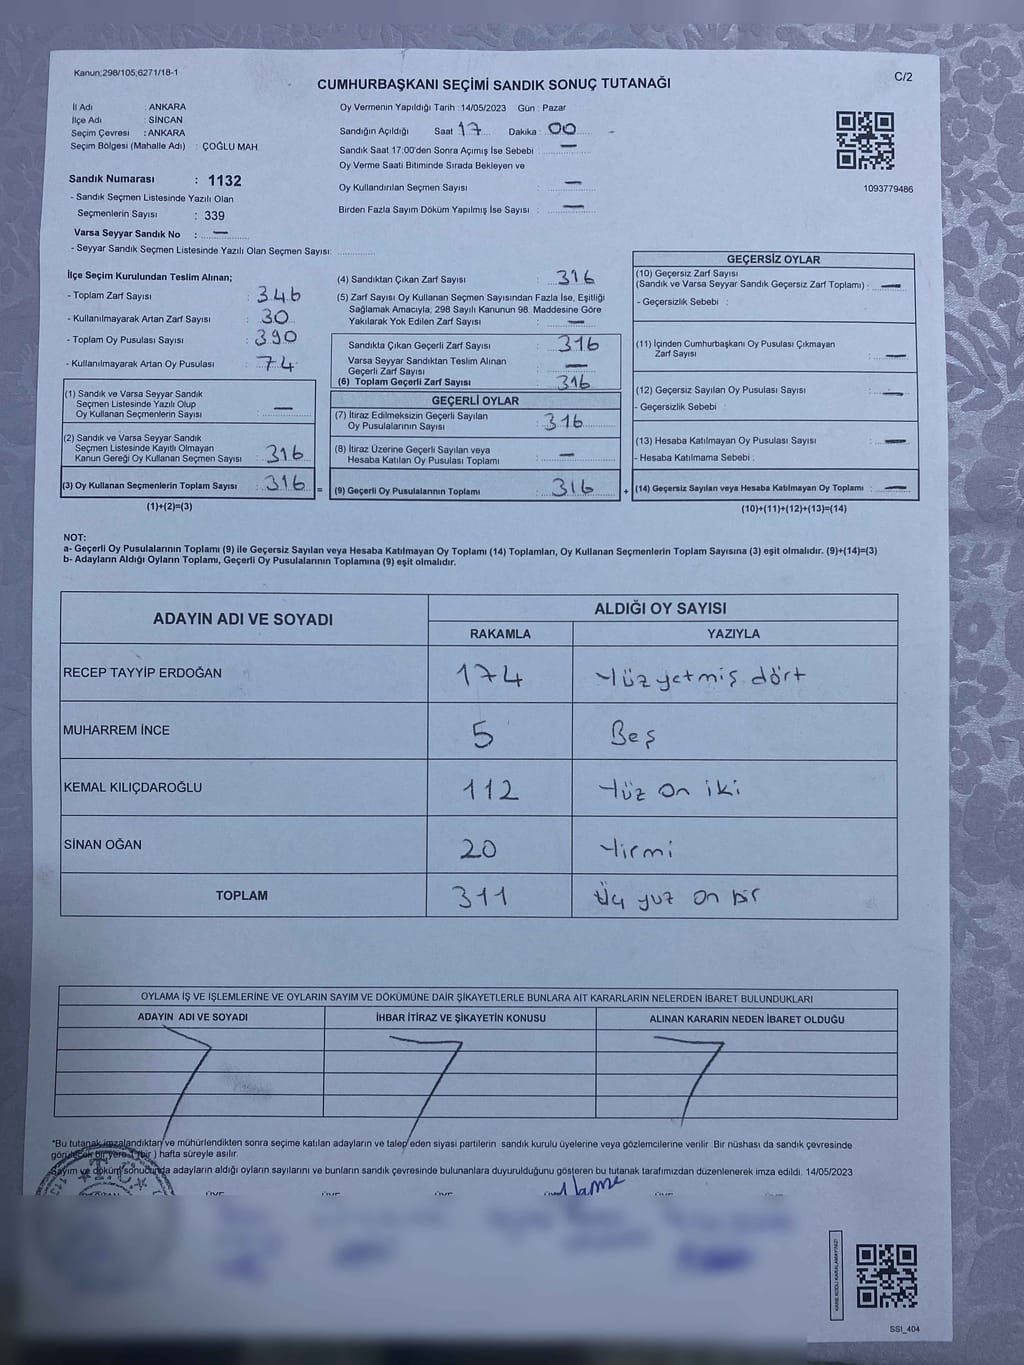 Kanun:298/105,6271/18-1
C/2
CUMHURBAŞKANI SEÇİMİ SANDIK SONUÇ TUTANAĞI
İl Adı : ANKARA
İlçe Adı : SİNCAN
Seçim Çevresi : ANKARA
Seçim Bölgesi (Mahalle Adı) : ÇOĞLU MAH
Sandık Numarası : 1132
- Sandık Seçmen Listesinde Yazılı Olan
Seçmenlerin Sayısı : 339
Varsa Seyyar Sandık No : —
- Seyyar Sandık Seçmen Listesinde Yazılı Olan Seçmen Sayısı:
Oy Vermenin Yapıldığı Tarih :14/05/2023 Gün : Pazar
Sandığın Açıldığı Saat 17 Dakika : 00
Sandık Saat 17:00'den Sonra Açımış İse Sebebi : —
Oy Verme Saati Bitiminde Sırada Bekleyen ve
Oy Kullandırılan Seçmen Sayısı : —
Birden Fazla Sayım Döküm Yapılmış İse Sayısı : —
1093779486
İlçe Seçim Kurulundan Teslim Alınan;
- Toplam Zarf Sayısı : 346
- Kullanılmayarak Artan Zarf Sayısı : 30
- Toplam Oy Pusulası Sayısı : 390
- Kullanılmayarak Artan Oy Pusulası : 74
(1) Sandık ve Varsa Seyyar Sandık
Seçmen Listesinde Yazılı Olup
Oy Kullanan Seçmenlerin Sayısı : —
(2) Sandık ve Varsa Seyyar Sandık
Seçmen Listesinde Kayıtlı Olmayan
Kanun Gereği Oy Kullanan Seçmen Sayısı : 316
(3) Oy Kullanan Seçmenlerin Toplam Sayısı : 316
(1)+(2)=(3)
(4) Sandıktan Çıkan Zarf Sayısı : 316
(5) Zarf Sayısı Oy Kullanan Seçmen Sayısından Fazla İse, Eşitliği
Sağlamak Amacıyla; 298 Sayılı Kanunun 98. Maddesine Göre
Yakılarak Yok Edilen Zarf Sayısı : —
Sandıkta Çıkan Geçerli Zarf Sayısı : 316
Varsa Seyyar Sandıktan Teslim Alınan
Geçerli Zarf Sayısı : —
(6) Toplam Geçerli Zarf Sayısı : 316
GEÇERLİ OYLAR
(7) İtiraz Edilmeksizin Geçerli Sayılan
Oy Pusulalarının Sayısı : 316
(8) İtiraz Üzerine Geçerli Sayılan veya
Hesaba Katılan Oy Pusulası Toplamı : —
= (9) Geçerli Oy Pusulalarının Toplamı : 316
GEÇERSİZ OYLAR
(10) Geçersiz Zarf Sayısı
(Sandık ve Varsa Seyyar Sandık Geçersiz Zarf Toplamı) : —
- Geçersizlik Sebebi :
(11) İçinden Cumhurbaşkanı Oy Pusulası Çıkmayan
Zarf Sayısı : —
(12) Geçersiz Sayılan Oy Pusulası Sayısı : —
- Geçersizlik Sebebi :
(13) Hesaba Katılmayan Oy Pusulası Sayısı : —
- Hesaba Katılmama Sebebi :
+ (14) Geçersiz Sayılan veya Hesaba Katılmayan Oy Toplamı : —
(10)+(11)+(12)+(13)=(14)
NOT:
a- Geçerli Oy Pusulalarının Toplamı (9) ile Geçersiz Sayılan veya Hesaba Katılmayan Oy Toplamı (14) Toplamları, Oy Kullanan Seçmenlerin Toplam Sayısına (3) eşit olmalıdır. (9)+(14)=(3)
b- Adayların Aldığı Oyların Toplamı, Geçerli Oy Pusulalarının Toplamına (9) eşit olmalıdır.
ADAYIN ADI VE SOYADI ALDIĞI OY SAYISI
RAKAMLA YAZIYLA
RECEP TAYYİP ERDOĞAN 174 Yüz yetmiş dört
MUHARREM İNCE 5 Beş
KEMAL KILIÇDAROĞLU 112 Yüz on iki
SİNAN OĞAN 20 Yirmi
TOPLAM 311 Üç yuz on bir
OYLAMA İŞ VE İŞLEMLERİNE VE OYLARIN SAYIM VE DÖKÜMÜNE DAİR ŞİKAYETLERLE BUNLARA AİT KARARLARIN NELERDEN İBARET BULUNDUKLARI
ADAYIN ADI VE SOYADI İHBAR İTİRAZ VE ŞİKAYETİN KONUSU ALINAN KARARIN NEDEN İBARET OLDUĞU
*Bu tutanak imzalandıktan ve mühürlendikten sonra seçime katılan adayların ve talep eden siyasi partilerin sandık kurulu üyelerine veya gözlemcilerine verilir. Bir nüshası da sandık çevresinde
görülecek bir yere 1 (bir ) hafta süreyle asılır.
Sayım ve döküm sonucunda adayların aldığı oyların sayılarını ve bunların sandık çevresinde bulunanlara duyurulduğunu gösteren bu tutanak tarafımızdan düzenlenerek imza edildi. 14/05/2023
KARE KODU KARALAMAYINIZ!
SSI_404